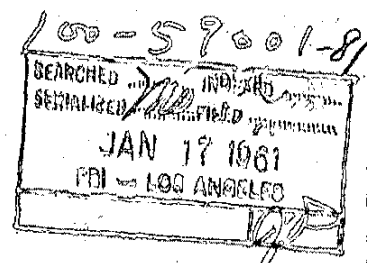 100-59001-81
SEARCHED INDEXED
SERIALIZED FILED
JAN 17 1961
FBI — LOS ANGELES